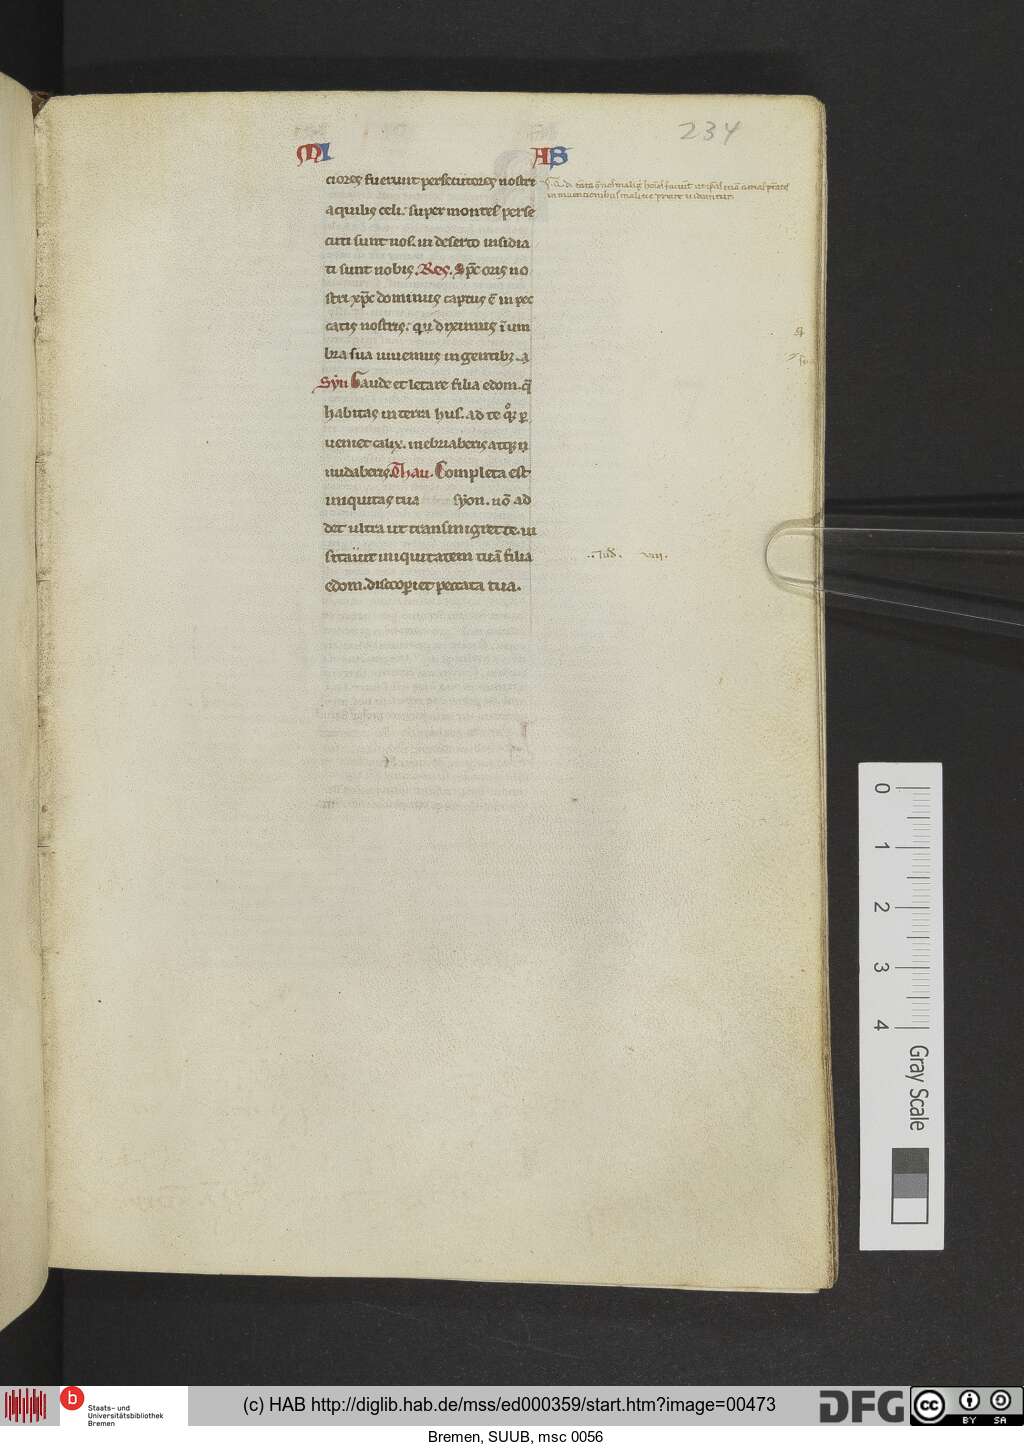 234
MI AS
ciores fuerunt persecutores nostri
aquilis celi. super montes perse
cuti sunt nos. in deserto insidia
ti sunt nobis. Res. Sp̅c oris no
stri xp̅c dominus captus e̅ in pec
catis nostris. diximus i̅ um
bra sua uiuemus in gentibꝫ.
Syn Gaude et letare filia edom. q̅
habitas in terra hus. ad te qͦꝫ ꝑ
ueniet calix. inebriaberis atqꝫ
nudaberis. Thau. Completa est
iniquitas tua syon. no̅ ad
det ultra ut transmigret te. ui
sitauit iniquitatem tua̅ filia
edom. discoopͥet peccata tua.
0
1
2
3
4
Gray Scale
b
Staats- und
Universitätsbibliothek
Bremen
(c) HAB http://diglib.hab.de/mss/ed000359/start.htm?image=00473
DFG
cc BY SA
Bremen, SUUB, msc 0056